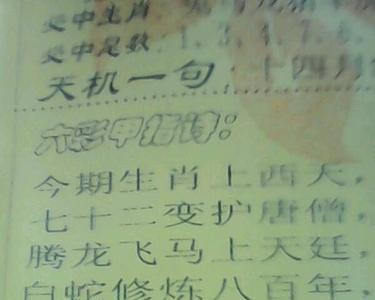 中生肖:
中尾数:1.3.4.7.
天机一句:十四月
六彩甲指诗:
今期生肖上西天,
七十二变护唐僧,
腾龙飞马上天廷,
白蛇修炼八百年,